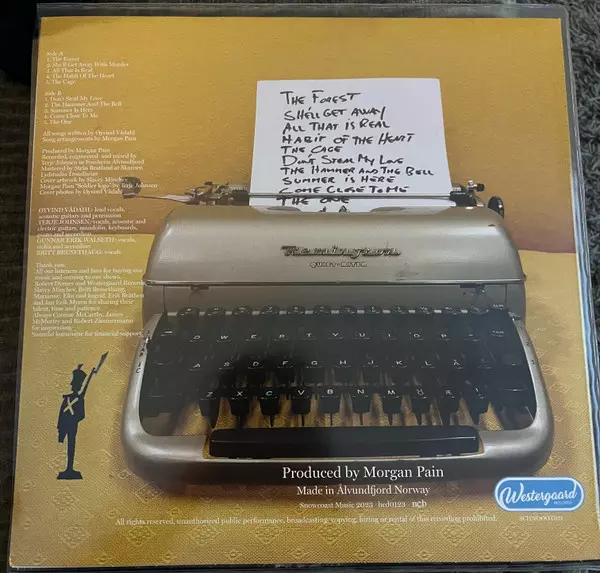 Side A
1. The Forest
2. She'll Get Away With Murder
3. All That Is Real
4. The Habit Of The Heart
5. The Cage
Side B
1. Don't Steal My Love
2. The Hammer And The Bell
3. Summer Is Here
4. Come Close To Me
5. The One
All songs written by Øyvind Vådahl
Song arrangements by Morgan Pain
Produced by Morgan Pain
Recorded, engineered and mixed by
Terje Johnsen in Fossheim Ålvundfjord
Mastered by Stein Bratland at Skansen
Lydstudio Trondheim
Cover artwork by Slavey
Morgan Pain "Soldier logo" by Terje Johnsen
Cover photos by Øyvind Vådahl
ØYVIND VÅDAHL: lead vocals,
acoustic guitars and percussion
TERJE JOHNSEN: vocals, acoustic and
electric guitars, mandolin, keyboards,
piano and accordion
GUNNAR ERIK WALSETH: vocals,
violin and accordion
BRITT BRUSETHAUG: vocals
Thank you:
All our listeners and fans for buying our
music and coming to our shows.
Robert Domes and Westergaard Records
talent, time and patience.
Always Cormac McCarthy, James
McMurtry and Robert Zimmermann
for inspiration.
for financial support
THE FOREST
SHE'LL GET AWAY
ALL THAT IS REAL
HABIT OF THE HEART
THE CAGE
DON'T STEAL MY LOVE
THE HAMMER AND THE BELL
SUMMER IS HERE
COME CLOSE TO ME
THE ONE
Remington
QUIET-RITER
Q W E R T Y U I O P
A S D F G H J K L
Z X C V B N M
Produced by Morgan Pain
Made in Ålvundfjord Norway
Snowcoast Music 2023 hcd0123 ncb
Westergaard
RECORDS
All rights reserved, unauthorized public performance, broadcasting, copying, hiring or rental of this recording prohibited.